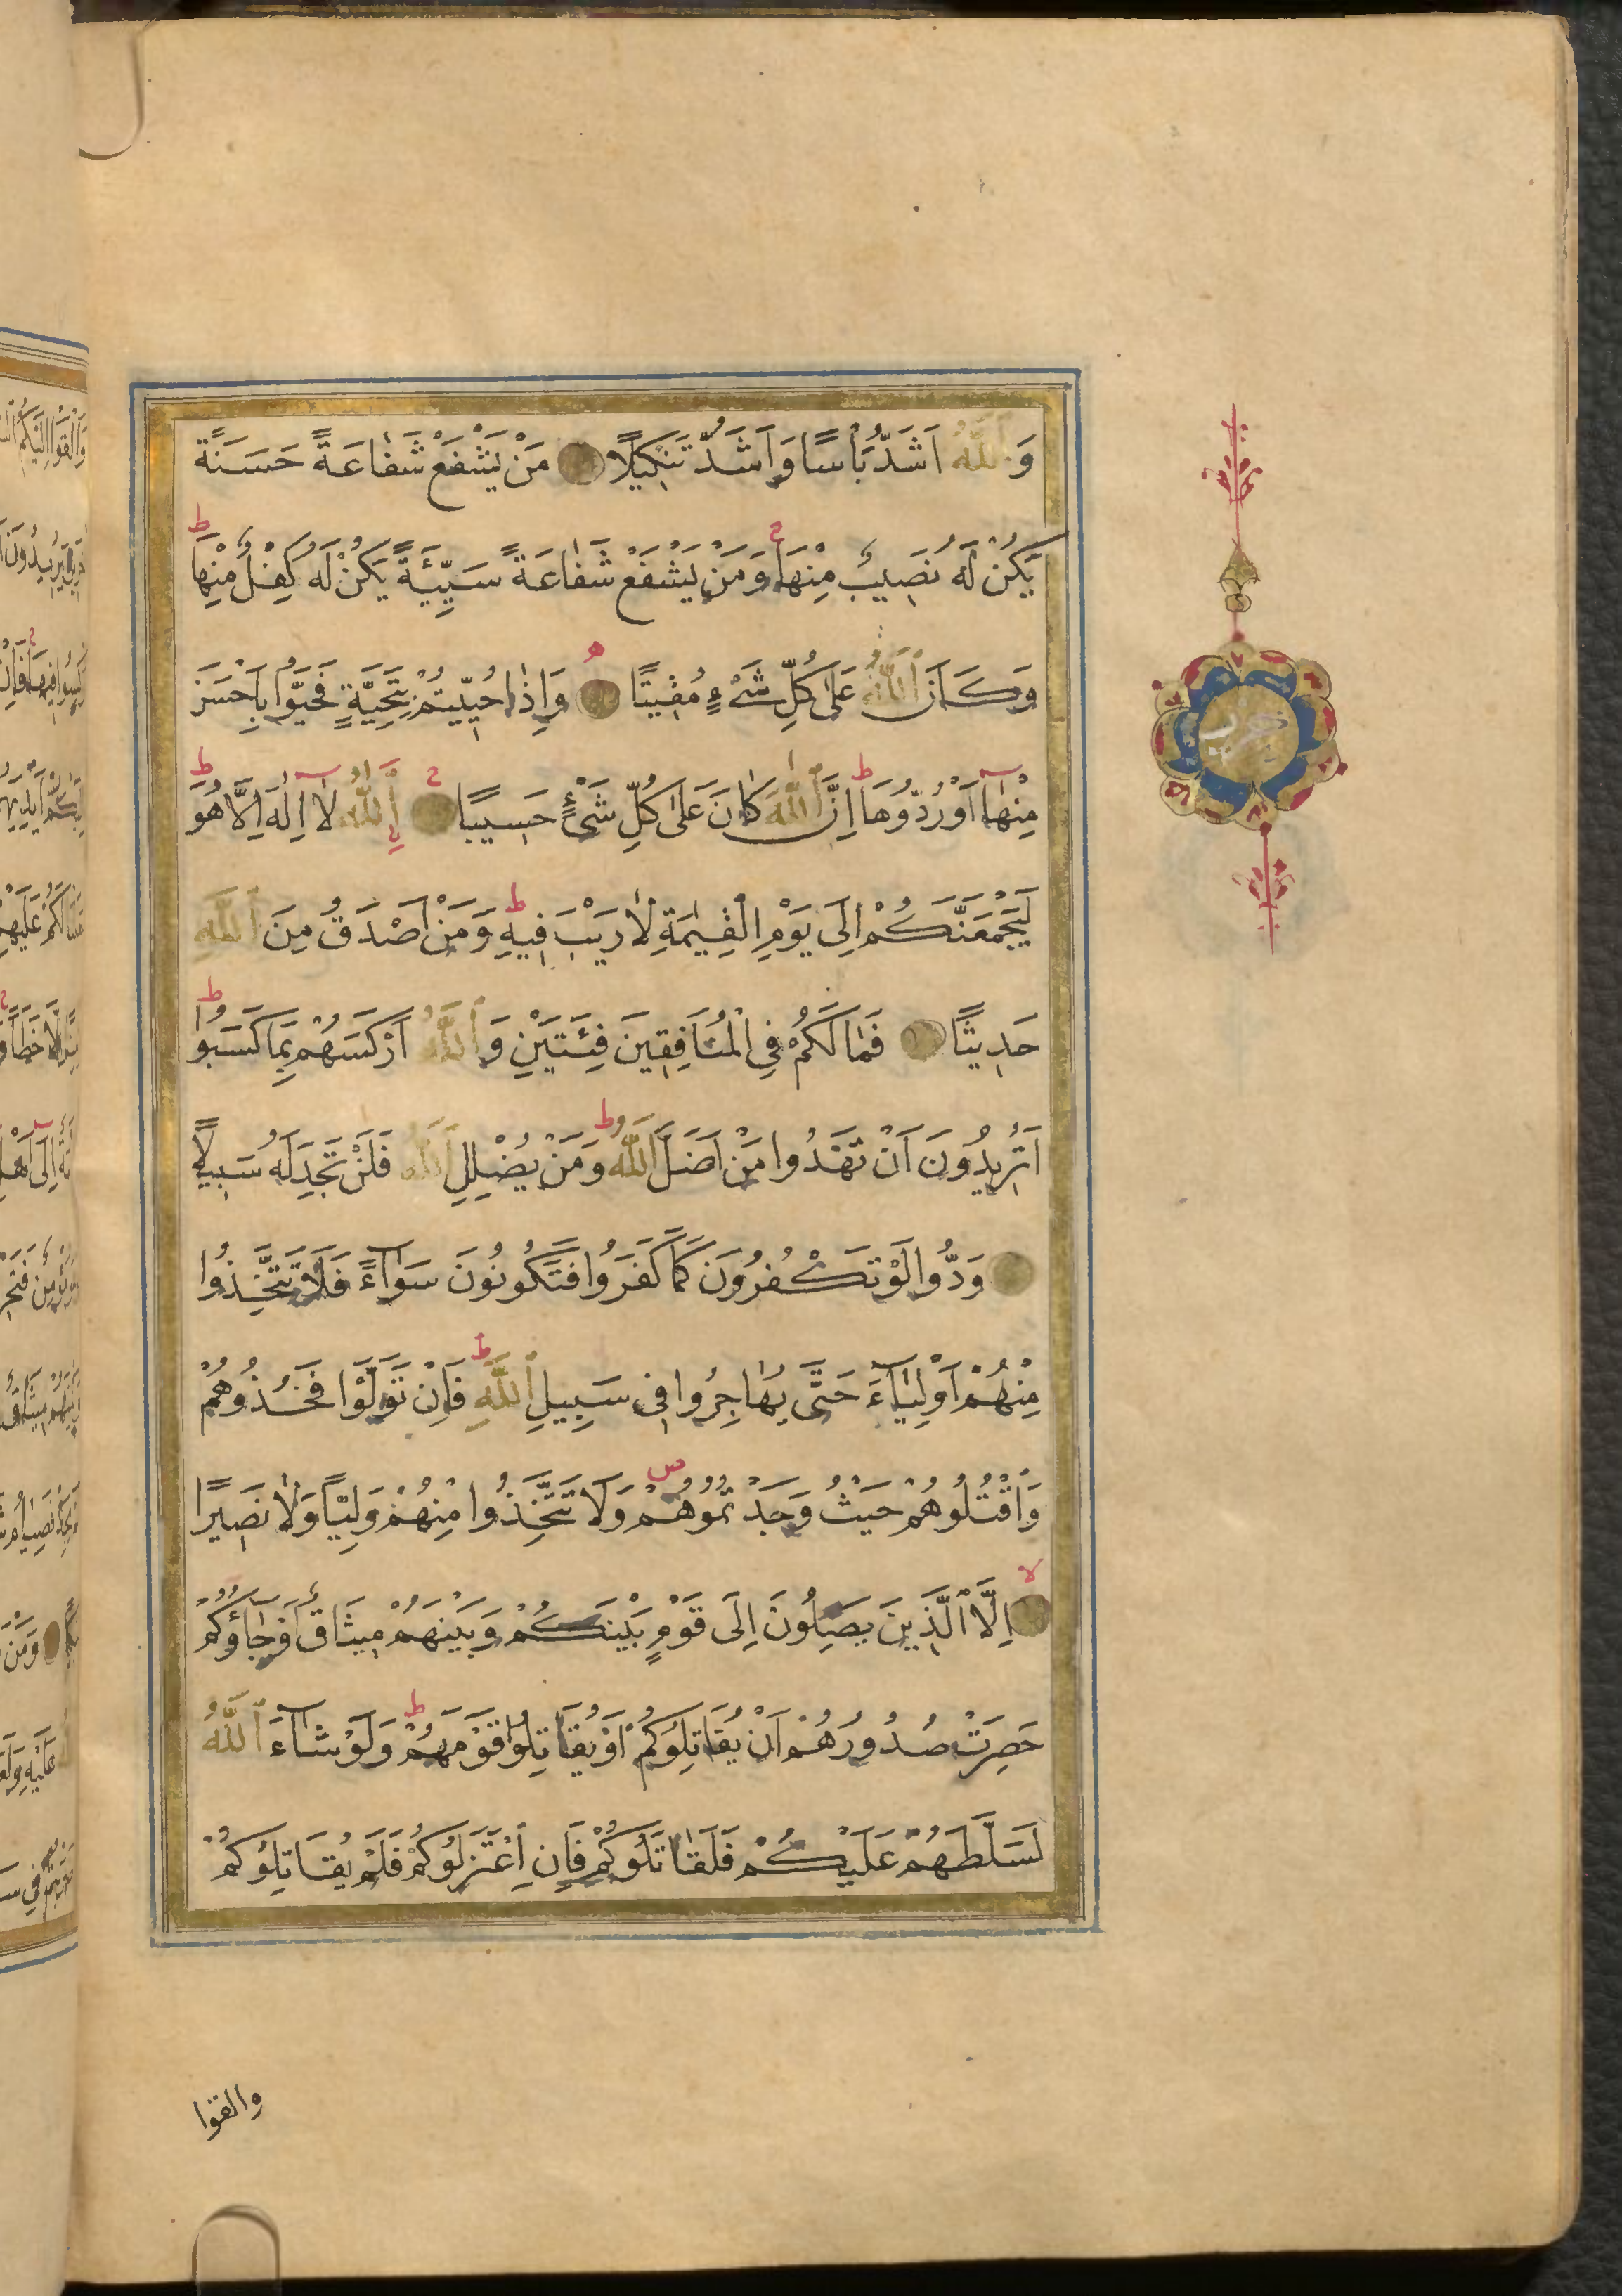 وَاللّٰهُ اَشَدُّ بَأْسًا وَاَشَدُّ تَنْكِيلًا مَنْ يَشْفَعْ شَفَاعَةً حَسَنَةً
يَكُنْ لَهُ نَصِيبٌ مِنْهَا ج وَمَنْ يَشْفَعْ شَفَاعَةً سَيِّئَةً يَكُنْ لَهُ كِفْلٌ مِنْهَا ط
وَكَانَ اللّٰهُ عَلٰى كُلِّ شَيْءٍ مُقِيتًا وَاِذَا حُيِّيتُمْ بِتَحِيَّةٍ فَحَيُّوا بِاَحْسَنَ
مِنْهَا اَوْ رُدُّوهَا ط اِنَّ اللّٰهَ كَانَ عَلٰى كُلِّ شَيْءٍ حَسِيبًا اَللّٰهُ لَا اِلٰهَ اِلَّا هُوَ ط
لَيَجْمَعَنَّكُمْ اِلٰى يَوْمِ الْقِيٰمَةِ لَا رَيْبَ فِيهِ ط وَمَنْ اَصْدَقُ مِنَ اللّٰهِ
حَدِيثًا فَمَا لَكُمْ فِي الْمُنَافِقِينَ فِئَتَيْنِ وَاللّٰهُ اَرْكَسَهُمْ بِمَا كَسَبُوا ط
اَتُرِيدُونَ اَنْ تَهْدُوا مَنْ اَضَلَّ اللّٰهُ ط وَمَنْ يُضْلِلِ اللّٰهُ فَلَنْ تَجِدَ لَهُ سَبِيلًا
وَدُّوا لَوْ تَكْفُرُونَ كَمَا كَفَرُوا فَتَكُونُونَ سَوَاءً فَلَا تَتَّخِذُوا
مِنْهُمْ اَوْلِيَاءَ حَتّٰى يُهَاجِرُوا فِي سَبِيلِ اللّٰهِ ط فَاِنْ تَوَلَّوْا فَخُذُوهُمْ
وَاقْتُلُوهُمْ حَيْثُ وَجَدْتُمُوهُمْ ص وَلَا تَتَّخِذُوا مِنْهُمْ وَلِيًّا وَلَا نَصِيرًا
لا اِلَّا الَّذِينَ يَصِلُونَ اِلٰى قَوْمٍ بَيْنَكُمْ وَبَيْنَهُمْ مِيثَاقٌ اَوْ جَاؤُكُمْ
حَصِرَتْ صُدُورُهُمْ اَنْ يُقَاتِلُوكُمْ اَوْ يُقَاتِلُوا قَوْمَهُمْ ط وَلَوْ شَاءَ اللّٰهُ
لَسَلَّطَهُمْ عَلَيْكُمْ فَلَقَاتَلُوكُمْ فَاِنِ اعْتَزَلُوكُمْ فَلَمْ يُقَاتِلُوكُمْ
والقوا
حزب